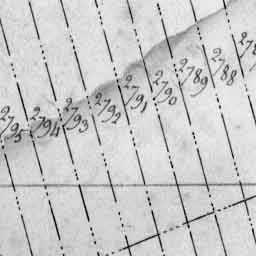 2795
2794
2793
2792
2791
2790
2789
2788